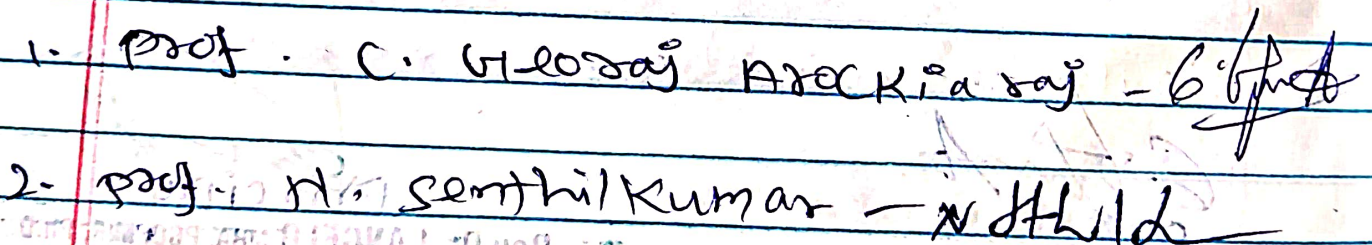 1. Prof. C. Georaj Arockiaraj -
2. Prof. N. Senthil Kumar -